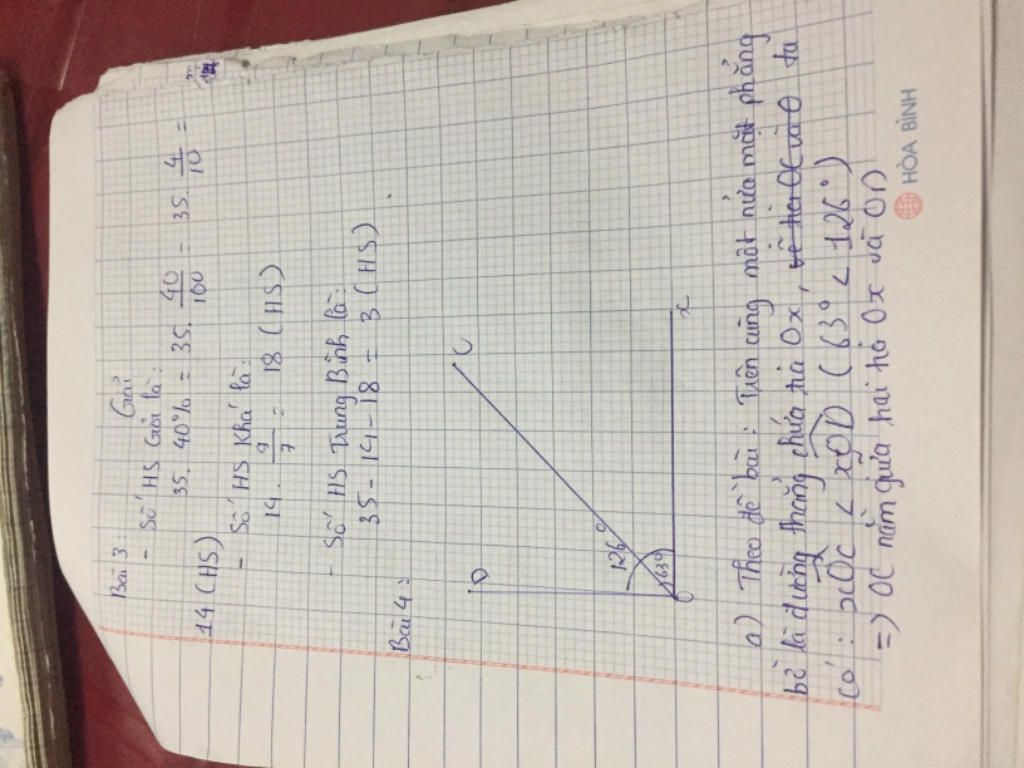 Bài 3:
Giải
- Số HS Giỏi là:
35. 40% = 35. 40/100 = 35. 4/10 =
14 (HS)
- Số HS Khá là:
14. 9/7 = 18 (HS)
- Số HS Trung Bình là:
35 - 14 - 18 = 3 (HS)
Bài 4:
D
C
126°
63°
O
x
a) Theo đề bài: Trên cùng một nửa mặt phẳng
bờ là đường thẳng chứa tia Ox, vẽ tia OC và O ta
có: xOC < xOD (63° < 126°)
=) OC nằm giữa hai hỏ Ox và OD
HÒA BÌNH